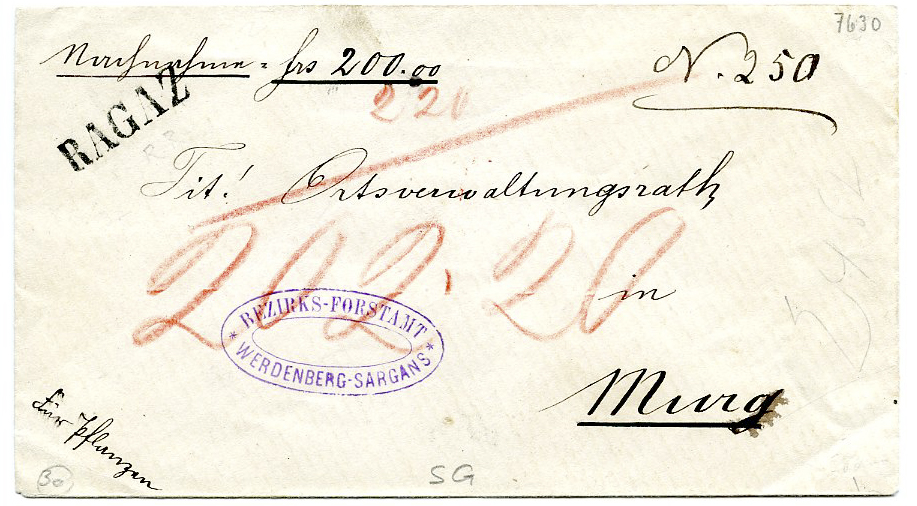 7630
Nachnahme = frs 200.00
N. 250
2 20
RAGAZ
Tit! Ortsverwaltungsrath,
202.20
in
* BEZIRKS-FORSTAMT *
WERDENBERG-SARGANS
Murg
Für Pflanzen
30
SG